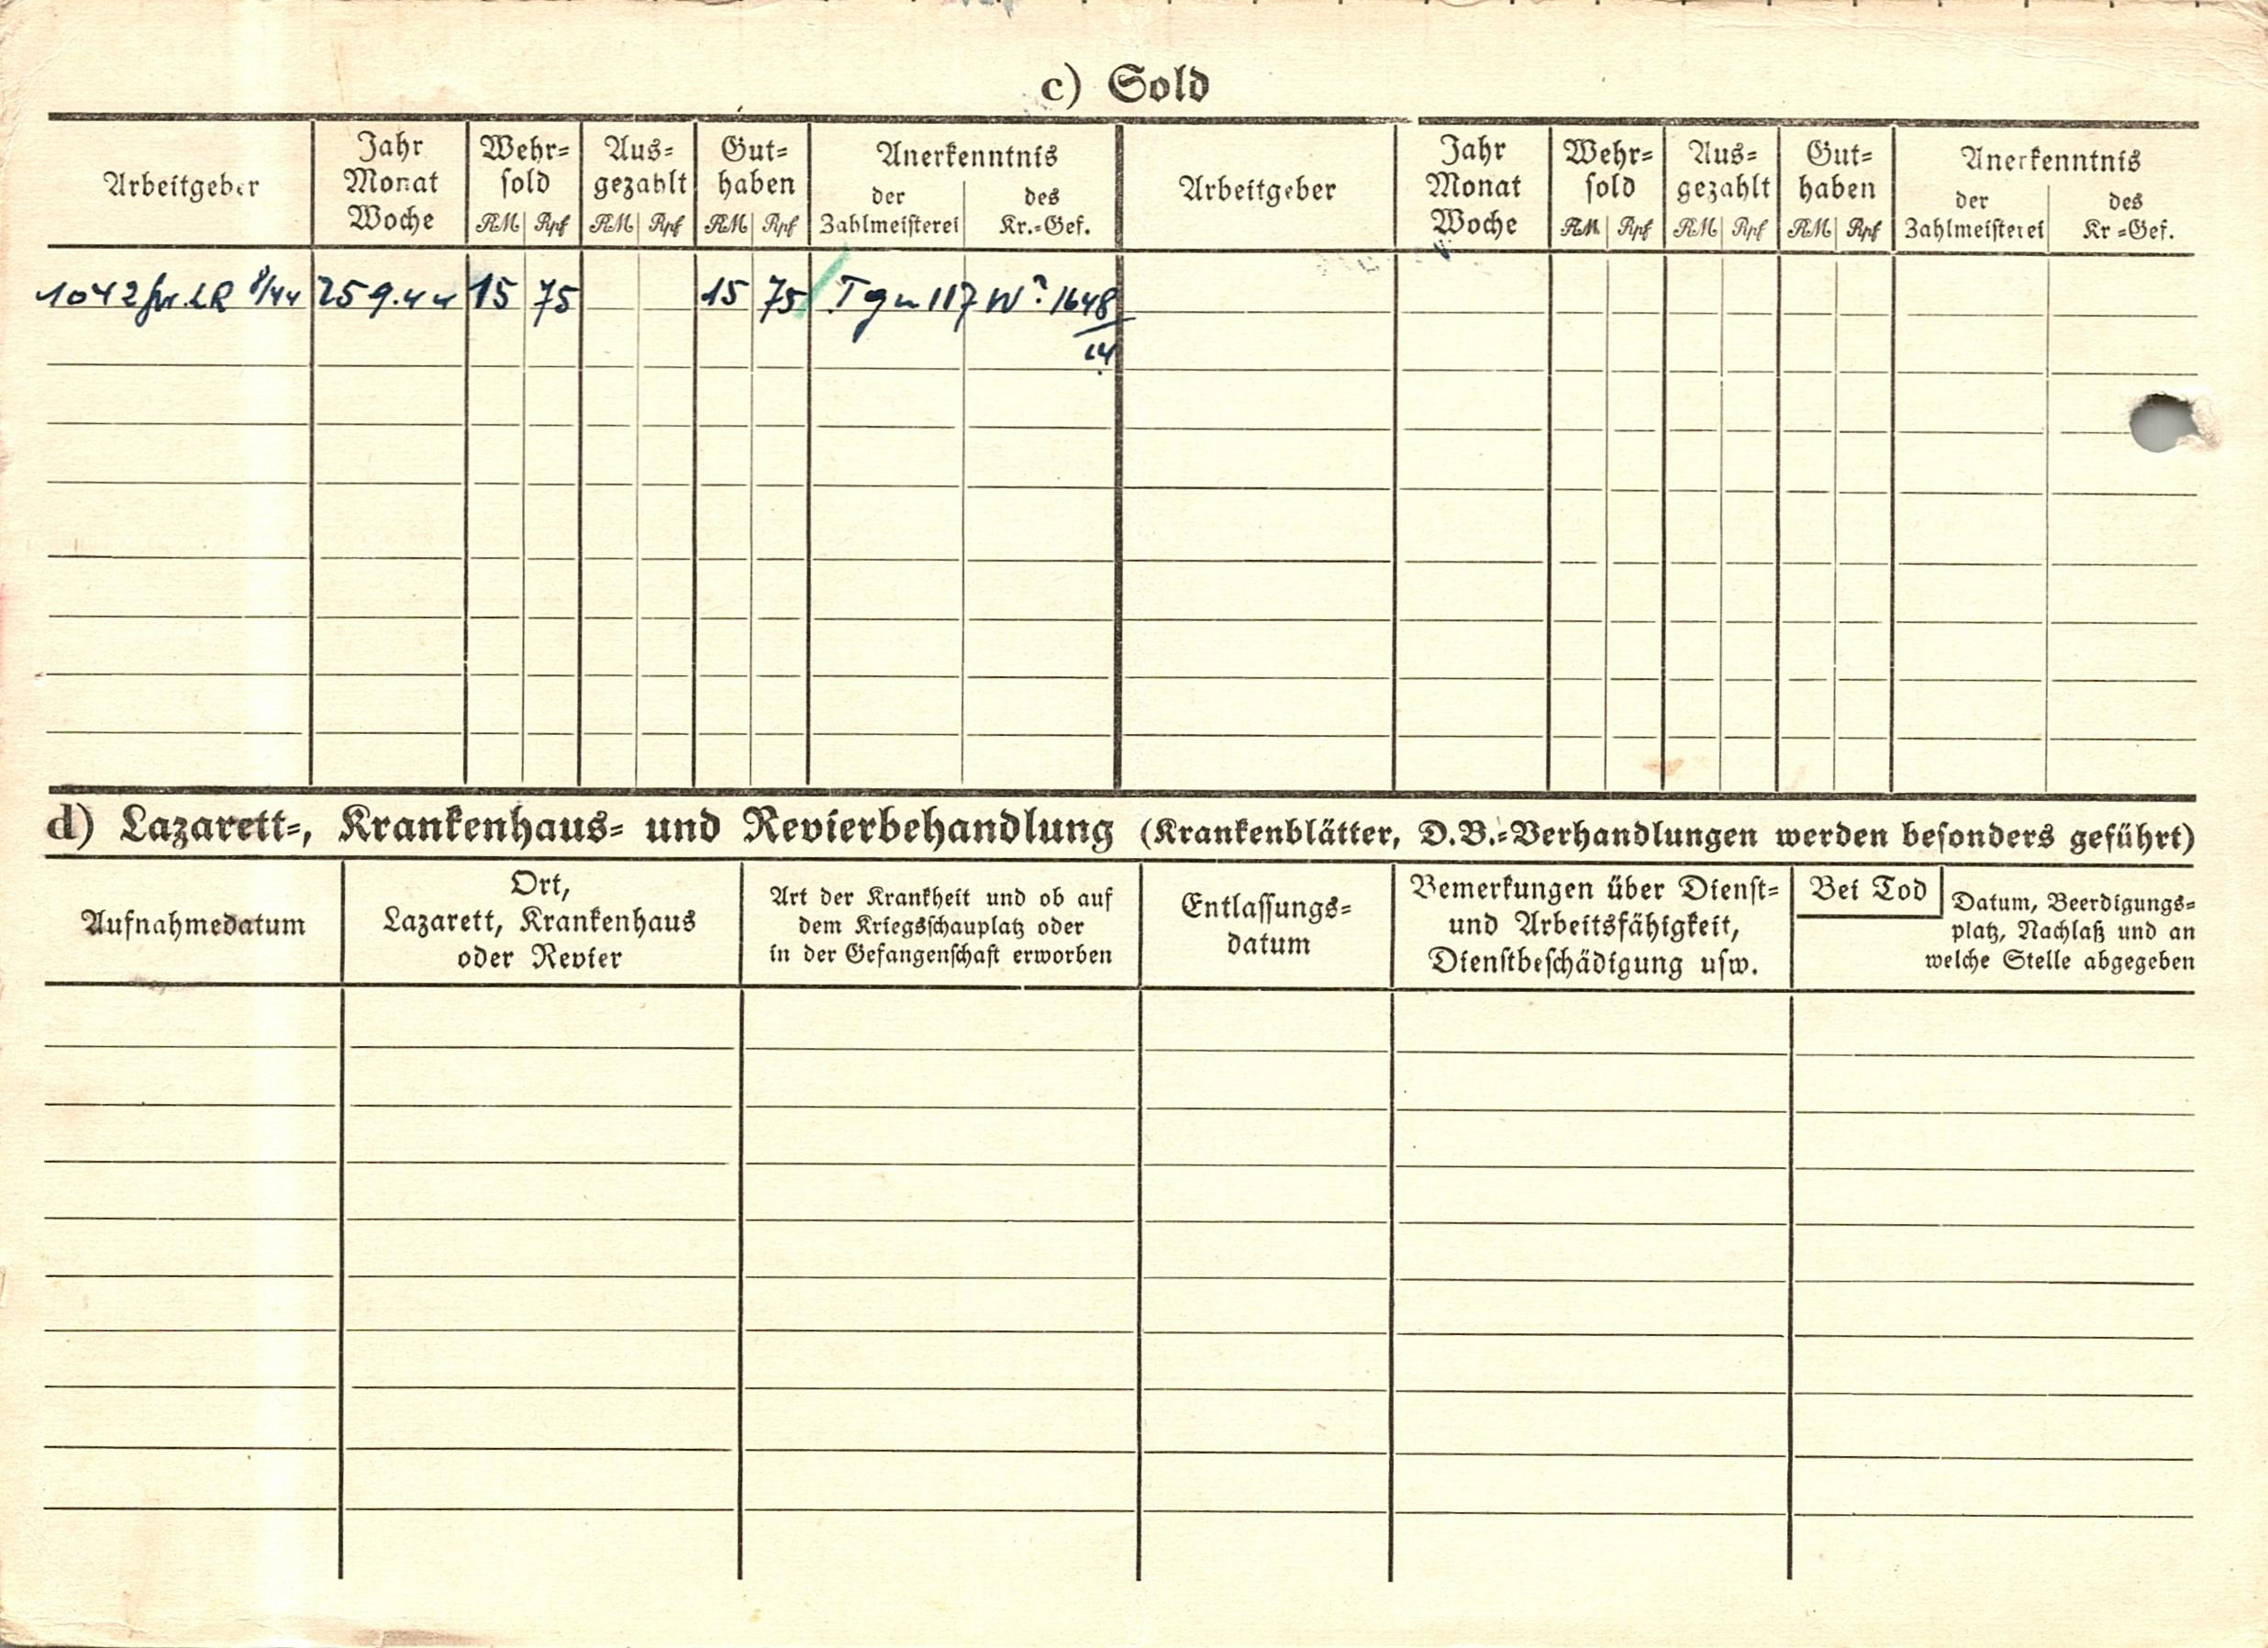 c) Sold
Arbeitgeber
Jahr
Monat
Woche
Wehr=
sold
RM Rpf
Aus=
gezahlt
RM Rpf
Gut=
haben
RM Rpf
Anerkenntnis
der
Zahlmeisterei
des
Kr.=Gef.
Arbeitgeber
Jahr
Monat
Woche
Wehr=
sold
RM Rpf
Aus=
gezahlt
RM Rpf
Gut=
haben
RM Rpf
Anerkenntnis
der
Zahlmeisterei
des
Kr =Gef.
1042 LR 8/44 25 9.44 15 75 15 75 117 1648
14
d) Lazarett=, Krankenhaus= und Revierbehandlung (Krankenblätter, D.B.=Verhandlungen werden besonders geführt)
Aufnahmedatum
Ort,
Lazarett, Krankenhaus
oder Revier
Art der Krankheit und ob auf
dem Kriegsschauplatz oder
in der Gefangenschaft erworben
Entlassungs=
datum
Bemerkungen über Dienst=
und Arbeitsfähigkeit,
Dienstbeschädigung usw.
Bei Tod
Datum, Beerdigungs=
platz, Nachlaß und an
welche Stelle abgegeben